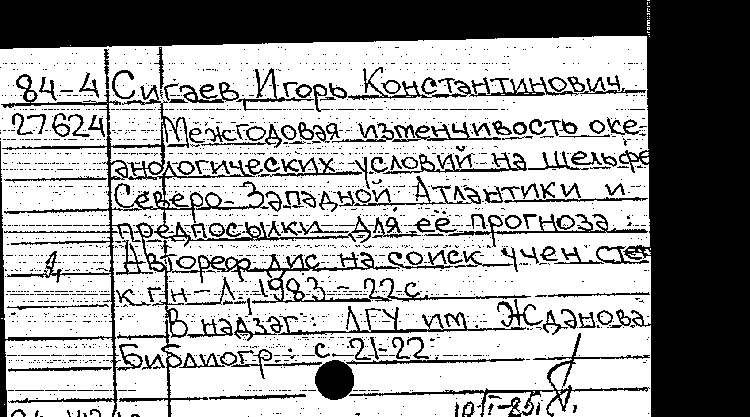 84-4 Сигаев, Игорь Константинович
27624 Межгодовая изменчивость оке-
анологических условий на шельфе
Северо-Западной Атлантики и
предпосылки для её прогноза :
Автореф. дис. на соиск. учен. степ
к.г.н. - Л., 1983. - 22 с.
В надзаг.: ЛГУ им. Жданова.
Библиогр.: с. 21-22.